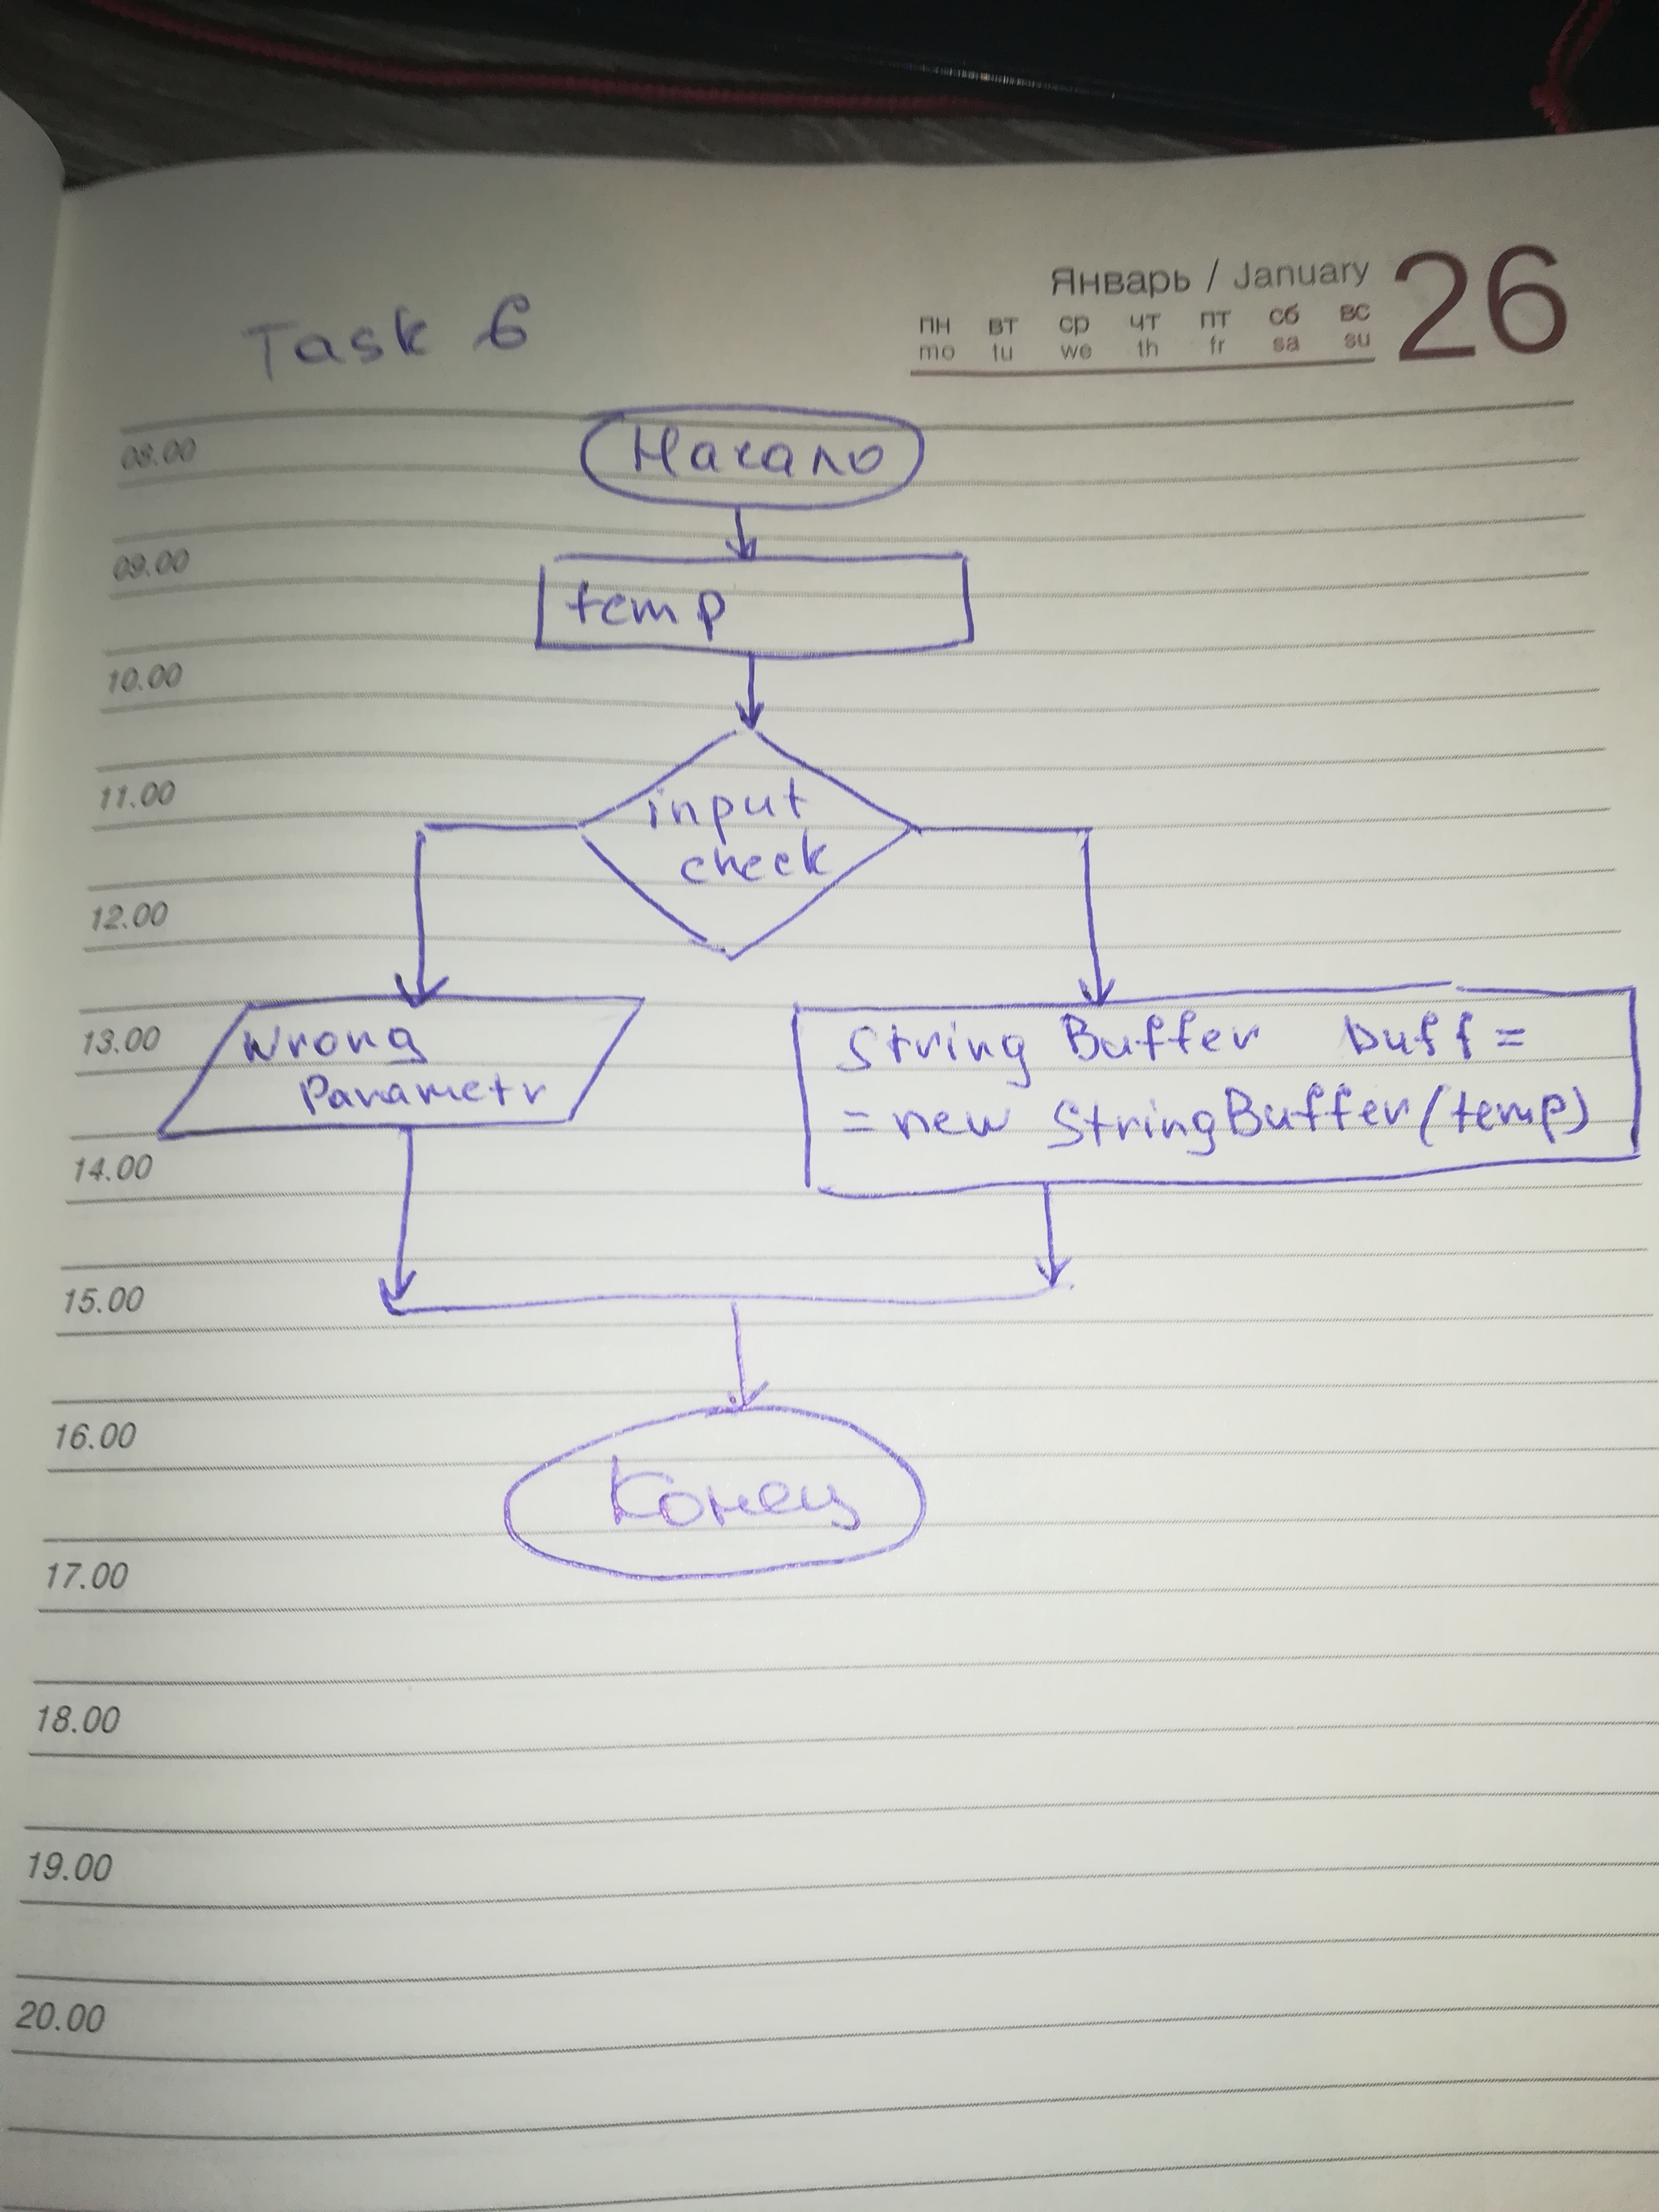 Январь / January 26
пн вт ср чт пт сб вс
mo tu we th fr sa su
Task 6
08.00
Начало
09.00
temp
10.00
11.00
input
check
12.00
13.00
Wrong
Parametr
String Buffer buff =
= new StringBuffer(temp)
14.00
15.00
16.00
Конец
17.00
18.00
19.00
20.00